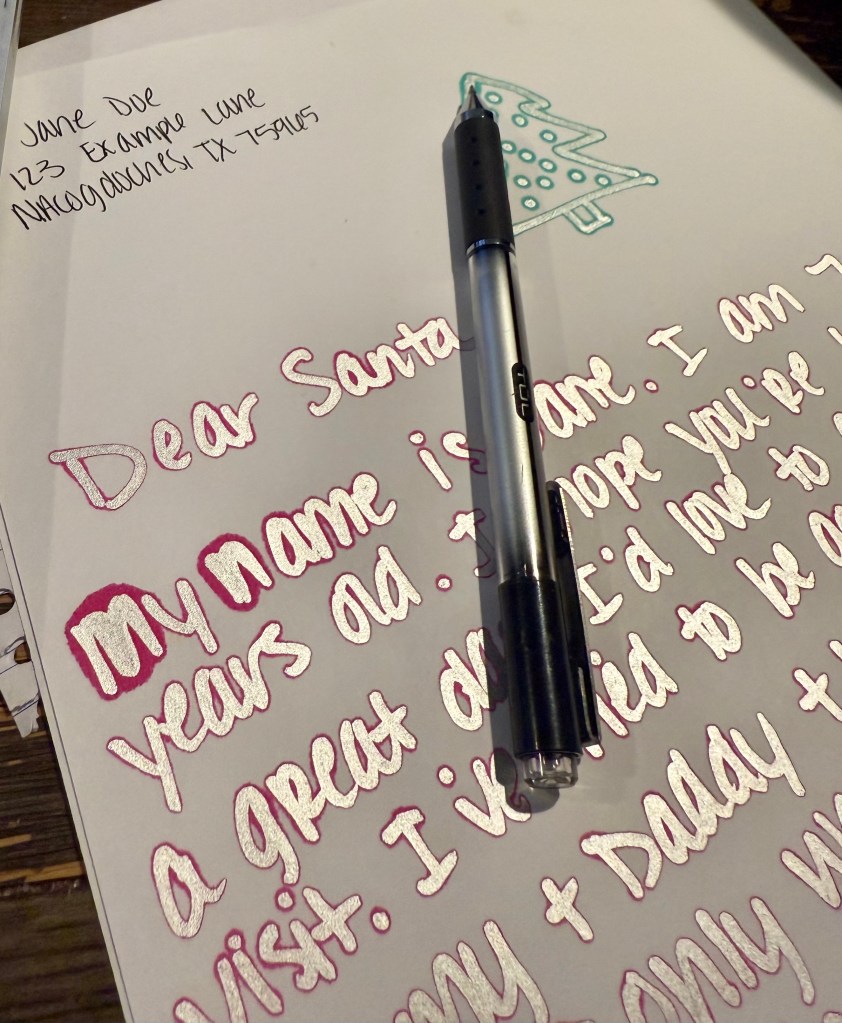 Jane Doe
123 Example Lane
Nacogdoches, TX 75965
Dear Santa
My name is Jane. I am 7
years old. I hope you're
a great day. I'd love to
visit. I've tried to be
+ Daddy +
only
TUL